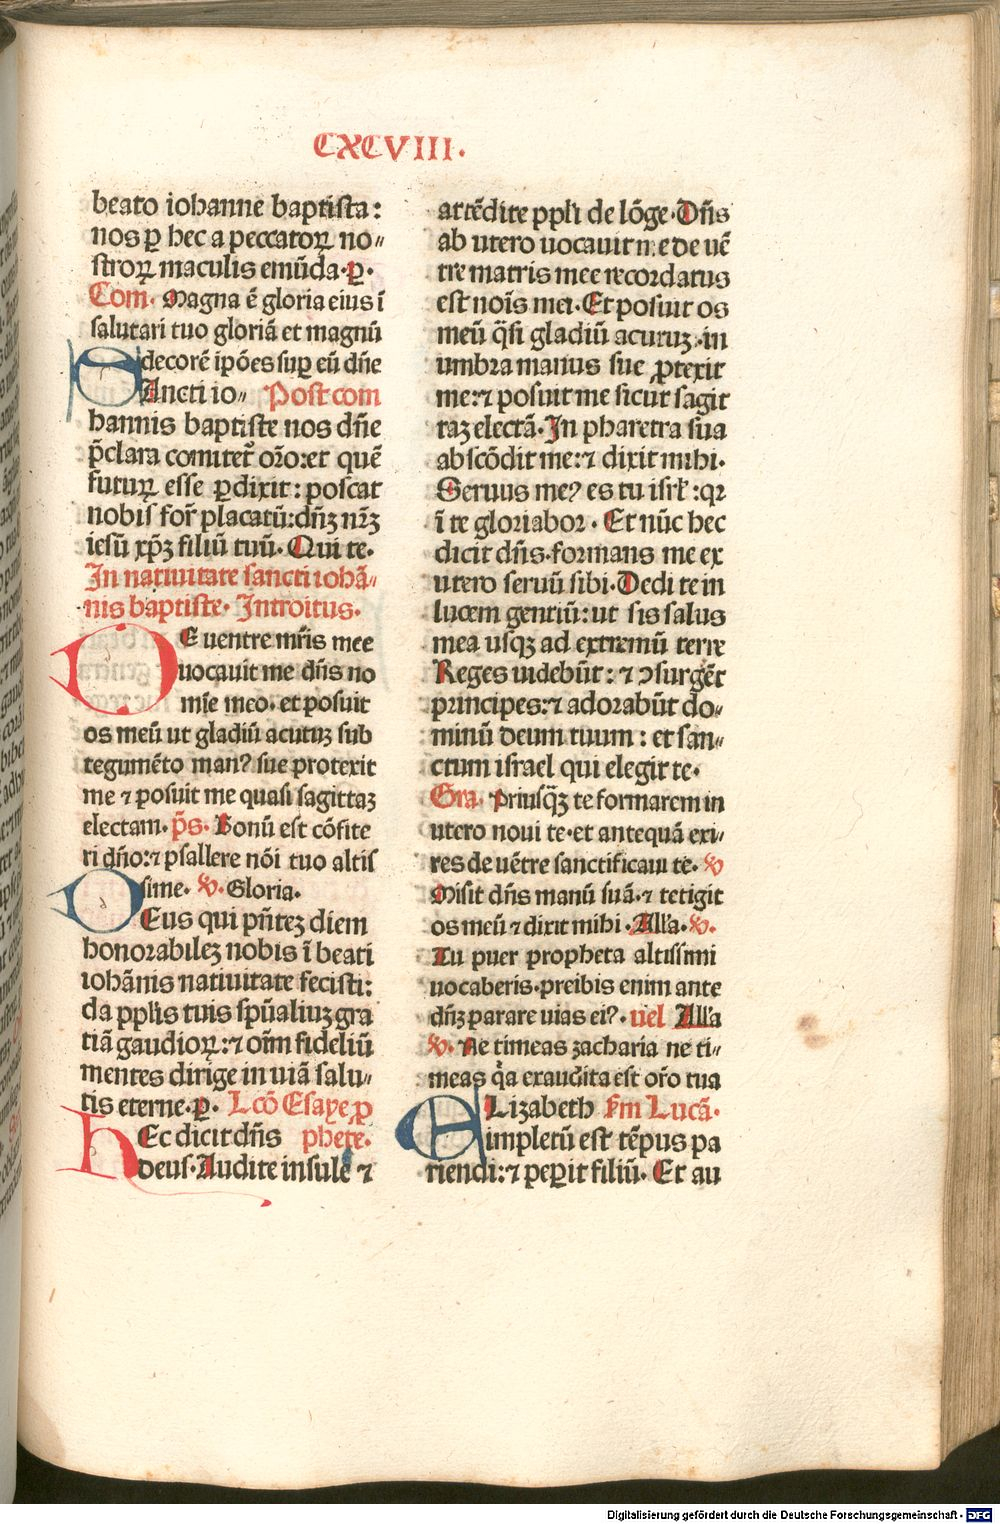 CXCVIII.
beato iohanne baptista:
nos ꝑ hec a peccatoꝝ no⸗
stroꝝ maculis emūda·ꝑ·
Com· Magna ē gloria eius ī
salutari tuo gloriā et magnū
decorē ipōes suꝑ eū dñe
SAncti io⸗ Postcom
hannis baptiste nos dñe
p̄clara comitet᷑ or̄o:et quē
futuꝝ esse p̄dixit: poscat
nobis for̄ placatū:dñꝫ nr̄ꝫ
iesū xp̄ꝫ filiū tuū· Qui te·
In natiuitate sancti iohā⸗
nis baptiste· Introitus·
DE uentre mr̄is mee
uocauit me dñs no
mīe meo· et posuit
os meū ut gladiū acutuꝫ sub
tegumēto manꝰ sue protexit
me ⁊ posuit me quasi sagittaꝫ
electam· p̄s· Bonū est cōfite
ri dño:⁊ psallere nōi tuo altis
sime· ℣· Gloria·
DEus qui pñteꝫ diem
honorabileꝫ nobis ī beati
iohānis natiuitate fecisti:
da pplis tuis spūaliuꝫ gra
tiā gaudioꝝ:⁊ oīm fideliū
mentes dirige in uiā salu⸗
tis eterne·ꝑ· Lcō Esaye ꝓ
HEc dicit dñs phete·
deus·Audite insule ⁊
attēdite ppli de lōge·Dñs
ab utero uocauit me de uē
tre matris mee recordatus
est nois mei·Et posuit os
meū q̄si gladiū acutuꝫ·in
umbra manus sue ꝓtexit
me:⁊ posuit me sicut sagit
taꝫ electā·In pharetra sua
abscōdit me:⁊ dixit mihi·
Seruus meꝰ es tu isrł :qr
ī te gloriabor· Et nūc hec
dicit dñs·formans me ex
utero seruū sibi·Dedi te in
lucem gentiū:ut sis salus
mea usqꝫ ad extremū terre
Reges uidebūt: ⁊ ɔsurgēt
principes:⁊ adorabūt do⸗
minū deum tuum : et san⸗
ctum israel qui elegit te·
Gra· Priusq̄ꝫ te formarem in
utero noui te·et antequā exi⸗
res de uētre sanctificaui te· ℣
Misit dñs manū suā·⁊ tetigit
os meū ⁊ dixit mihi·Alła·℣·
Tu puer propheta altissimi
uocaberis·preibis enim ante
dñꝫ parare uias eiꝰ· uel Alła
℣· Ne timeas zacharia ne ti⸗
meas q̄a exaudita est or̄o tua
ELizabeth s̄m Lucā·
impletū est tēpus pa
riendi:⁊ peꝑit filiū· Et au
Digitalisierung gefördert durch die Deutsche Forschungsgemeinschaft - DFG